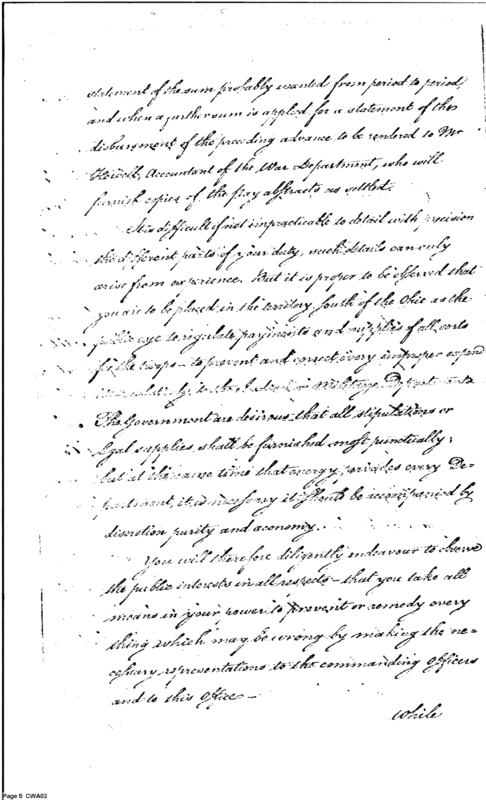 statement of the sum probably wanted from period to period,
and when a further sum is applied for a statement of the
disbursment of the preceding advance to be rendered to Mr
Howell, Accountant of the War Department, who will
furnish copies of the pay abstracts as settled.
It is difficult if not impracticable to detail with precision
the different parts of your duty, such details can only
arise from experience. But it is proper to be observed that
you are to be placed in the territory South of the Ohio as the
public eye to regulate payments and supplies of all sorts
for the troops to prevent and correct every improper expend
to the Indian or Military Department
The Government are desirous that all stipulations or
legal supplies, shall be furnished most punctually;
but at the same time that energy pervades every De-
partment, it is necessary it should be accompanied by
discretion purity and economy.
You will therefore diligently endeavour to observe
the public interests in all respects - that you take all
means in your power to prevent or remedy every
thing which may be wrong by making the ne-
cessary representations to the commanding Officers
and to this Office —
While
Page 5 CWA02